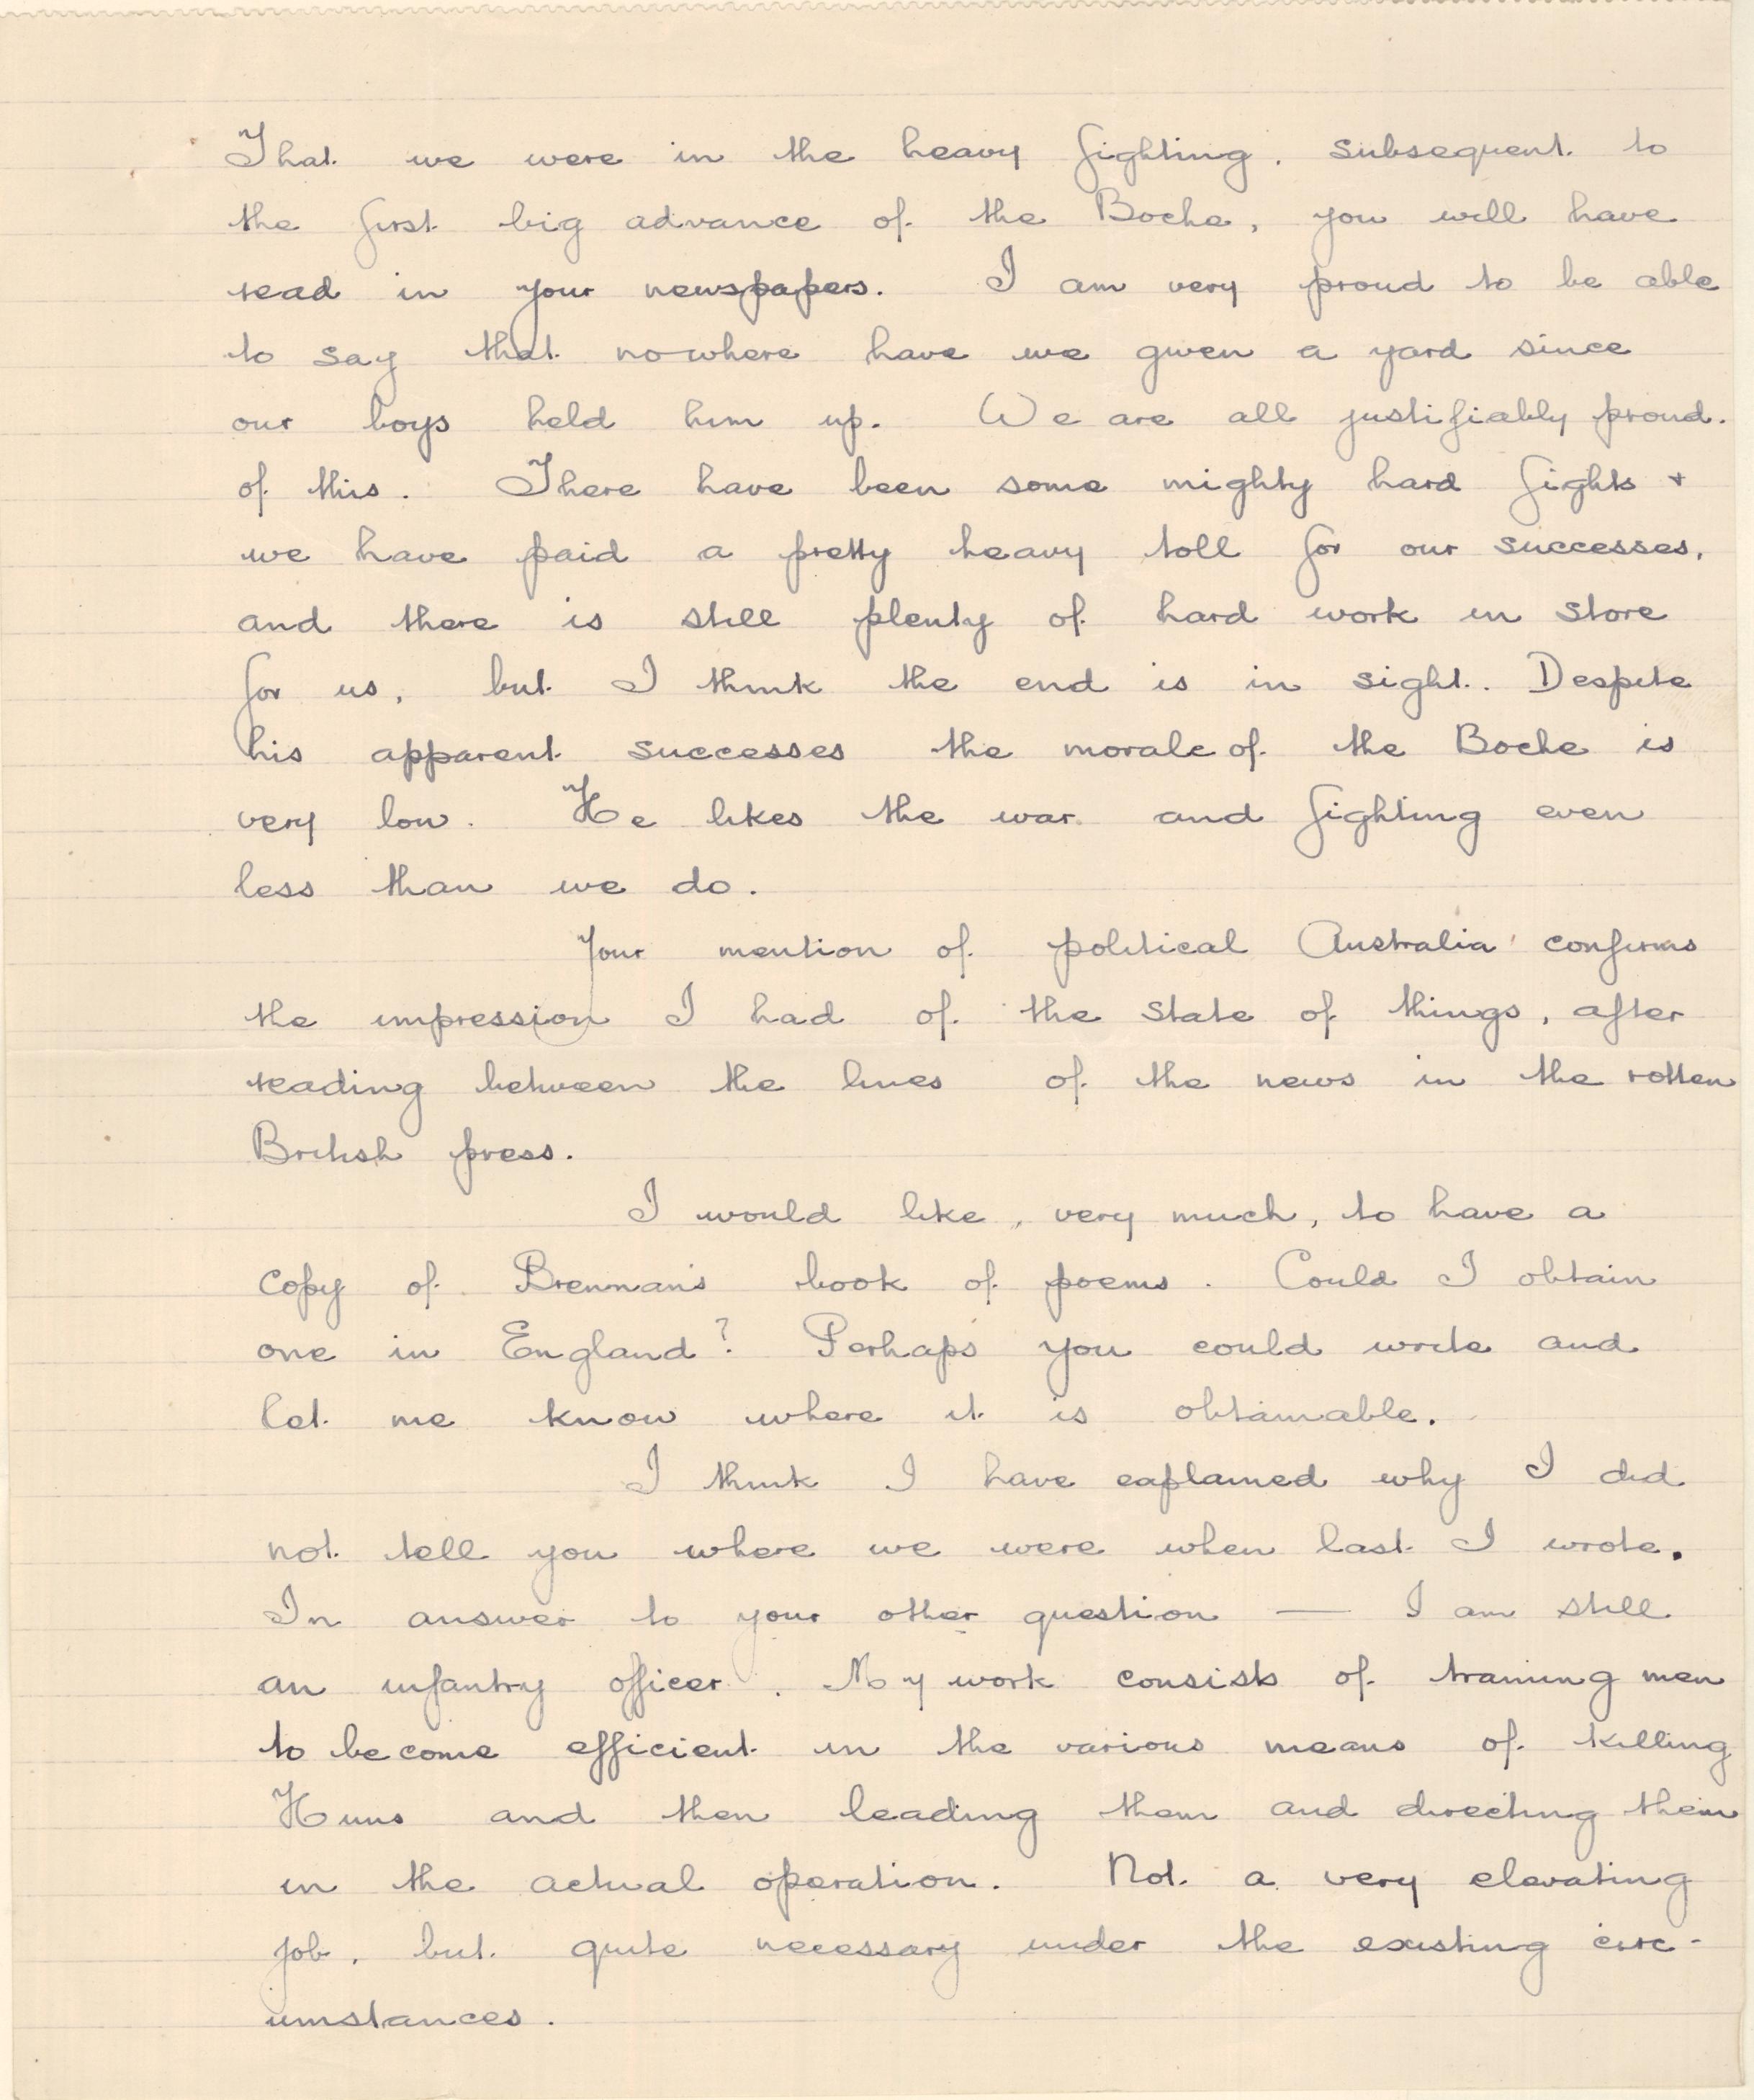 That we were in the heavy fighting, subsequent to
the first big advance of the Boche, you will have
read in your newspapers. I am very proud to be able
to say that nowhere have we given a yard since
our boys held him up. We are all justifiably proud.
of this. There have been some mighty hard fights +
we have paid a pretty heavy toll for our successes,
and there is still plenty of hard work in store
for us, but I think the end is in sight. Despite
his apparent successes the morale of the Boche is
very low. He likes the war and fighting even
less than we do.
Your mention of political Australia confirms
the impression I had of the state of things, after
reading between the lines of the news in the rotten
British press.
I would like, very much, to have a
copy of Brennan's book of poems. Could I obtain
one in England? Perhaps you could write and
let me know where it is obtainable.
I think I have explained why I did
not tell you where we were when last I wrote.
In answer to your other question — I am still
an infantry officer. My work consists of training men
to become efficient in the various means of killing
Huns and then leading them and directing them
in the actual operation. Not a very elevating
job, but quite necessary under the existing circ-
umstances.